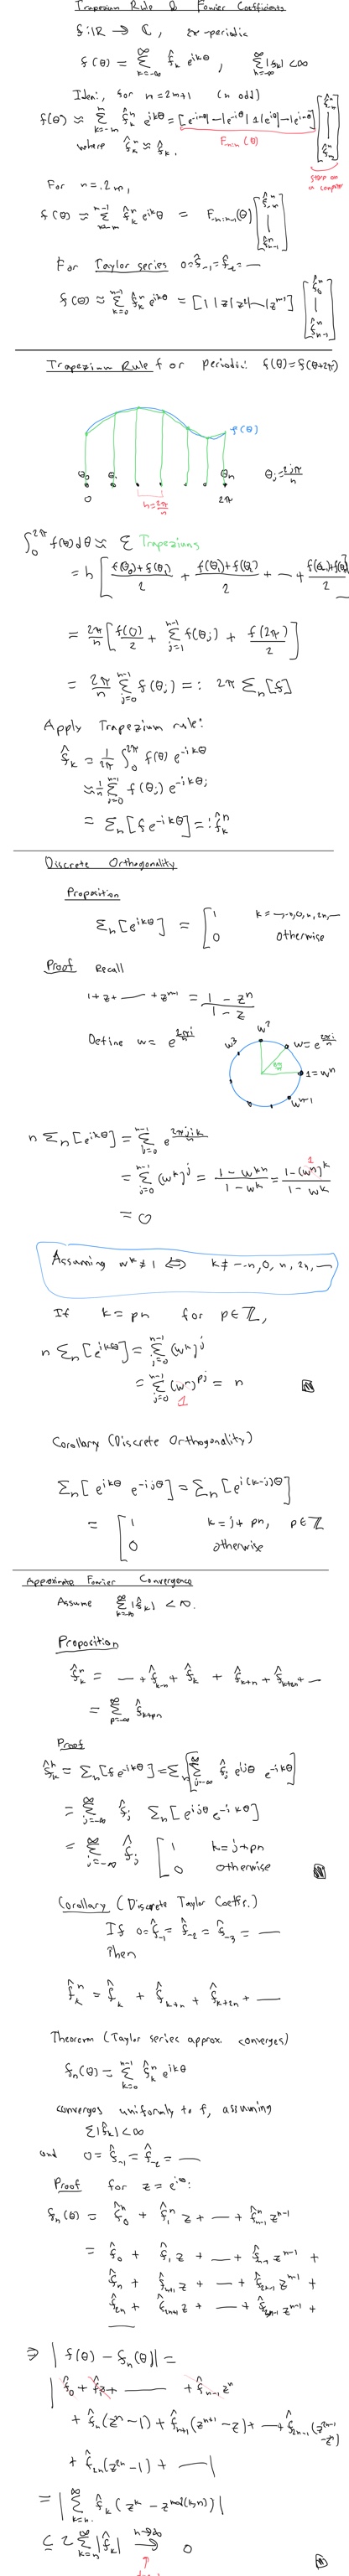 Trapezium Rule & Fourier Coefficients
f: ℝ → ℂ, 2π-periodic
f(θ) = ∑_{k=-∞}^{∞} f̂_k e^{ikθ}, ∑_{k=-∞}^{∞} |f̂_k| < ∞
Idea:, for n=2m+1 (n odd)
f(θ) ≈ ∑_{k=-m}^{m} f̂_k^n e^{ikθ} = [e^{-imθ}|—|e^{-iθ}|1|e^{iθ}|—|e^{imθ}] [f̂_{-m}^n | f̂_m^n]
F_{-m:m}(θ)
where f̂_k^n ≈ f̂_k.
For n = 2m,
f(θ) ≈ ∑_{k=-m}^{m-1} f̂_k^n e^{ikθ} = F_{-m:m-1}(θ) [f̂_{-m}^n | f̂_{m-1}^n]
For Taylor series 0 = f̂_{-1} = f̂_{-2} = —
f(θ) ≈ ∑_{k=0}^{n-1} f̂_k^n e^{ikθ} = [1|z|z²|—|z^{n-1}] [f̂_0^n | f̂_{n-1}^n]
Trapezium Rule for periodic: f(θ)=f(θ+2π)
f(θ)
θ_0 θ_1 θ_n θ_j = 2jπ/n
0 h=2π/n 2π
∫_0^{2π} f(θ)dθ ≈ ∑ Trapeziums
= h [ (f(θ_0)+f(θ_1))/2 + (f(θ_1)+f(θ_2))/2 + — + (f(θ_{n-1})+f(θ_n))/2 ]
= 2π/n [ f(0)/2 + ∑_{j=1}^{n-1} f(θ_j) + f(2π)/2 ]
= 2π/n ∑_{j=0}^{n-1} f(θ_j) =: 2π Σ_n[f]
Apply Trapezium rule:
f̂_k = 1/2π ∫_0^{2π} f(θ) e^{-ikθ}
≈ 1/n ∑_{j=0}^{n-1} f(θ_j) e^{-ikθ_j}
= Σ_n[f e^{-ikθ}] =: f̂_k^n
Discrete Orthogonality
Proposition
Σ_n[e^{ikθ}] = [ 1 k = —, -n, 0, n, 2n, —
0 otherwise
Proof Recall
1+z+ — +z^{n-1} = (1 - z^n)/(1 - z)
Define w = e^{2πi/n}
w² w³ w = e^{2πi/n} 1=w^n w^{n-1}
n Σ_n[e^{ikθ}] = ∑_{j=0}^{n-1} e^{2πjik/n}
= ∑_{j=0}^{n-1} (w^k)^j = (1 - w^{kn})/(1 - w^k) = (1-(w^n)^k)/(1 - w^k)
1
= 0
Assuming w^k ≠ 1 ⇔ k ≠ —, -n, 0, n, 2n, —
If k = pn for p∈ℤ,
n Σ_n[e^{ikθ}] = ∑_{j=0}^{n-1} (w^k)^j
= ∑_{j=0}^{n-1} (w^n)^{pj} = n
1
Corollary (Discrete Orthogonality)
Σ_n[e^{ikθ} e^{-ijθ}] = Σ_n[e^{i(k-j)θ}]
= [ 1 k = j + pn, p∈ℤ
0 otherwise
Approximate Fourier Convergence
Assume ∑_{k=-∞}^{∞} |f̂_k| < ∞.
Proposition
f̂_k^n = — + f̂_{k-n} + f̂_k + f̂_{k+n} + f̂_{k+2n} + —
= ∑_{p=-∞}^{∞} f̂_{k+pn}
Proof
f̂_k^n = Σ_n[f e^{-ikθ}] = Σ_n[∑_{j=-∞}^{∞} f̂_j e^{ijθ} e^{-ikθ}]
= ∑_{j=-∞}^{∞} f̂_j Σ_n[e^{ijθ} e^{-ikθ}]
= ∑_{j=-∞}^{∞} f̂_j [ 1 k=j+pn
0 otherwise
Corollary (Discrete Taylor Coeffic.)
If 0 = f̂_{-1} = f̂_{-2} = f̂_{-3} = —
Then
f̂_k^n = f̂_k + f̂_{k+n} + f̂_{k+2n} + —
Theorem (Taylor series approx. converges)
f_n(θ) = ∑_{k=0}^{n-1} f̂_k^n e^{ikθ}
converges uniformly to f, assuming
∑|f̂_k| < ∞
and 0 = f̂_{-1} = f̂_{-2} = —
Proof for z = e^{iθ}:
f_n(θ) = f̂_0^n + f̂_1^n z + — + f̂_{n-1}^n z^{n-1}
= f̂_0 + f̂_1 z + — + f̂_{n-1} z^{n-1} +
f̂_n + f̂_{n+1} z + — + f̂_{2n-1} z^{n-1} +
f̂_{2n} + f̂_{2n+1} z + — + f̂_{3n-1} z^{n-1} +
—
⇒ |f(θ) - f_n(θ)| =
| f̂_0 + f̂_1 z + — + f̂_{n-1} z^n
+ f̂_n(z^n - 1) + f̂_{n+1}(z^{n+1} - z) + — + f̂_{2n-1}(z^{2n-1} - z^n)
+ f̂_{2n}(z^{2n} - 1) + — |
= |∑_{k=n}^{∞} f̂_k (z^k - z^{mod(k,n)})|
≤ 2 ∑_{k=n}^{∞} |f̂_k| → 0
n→∞